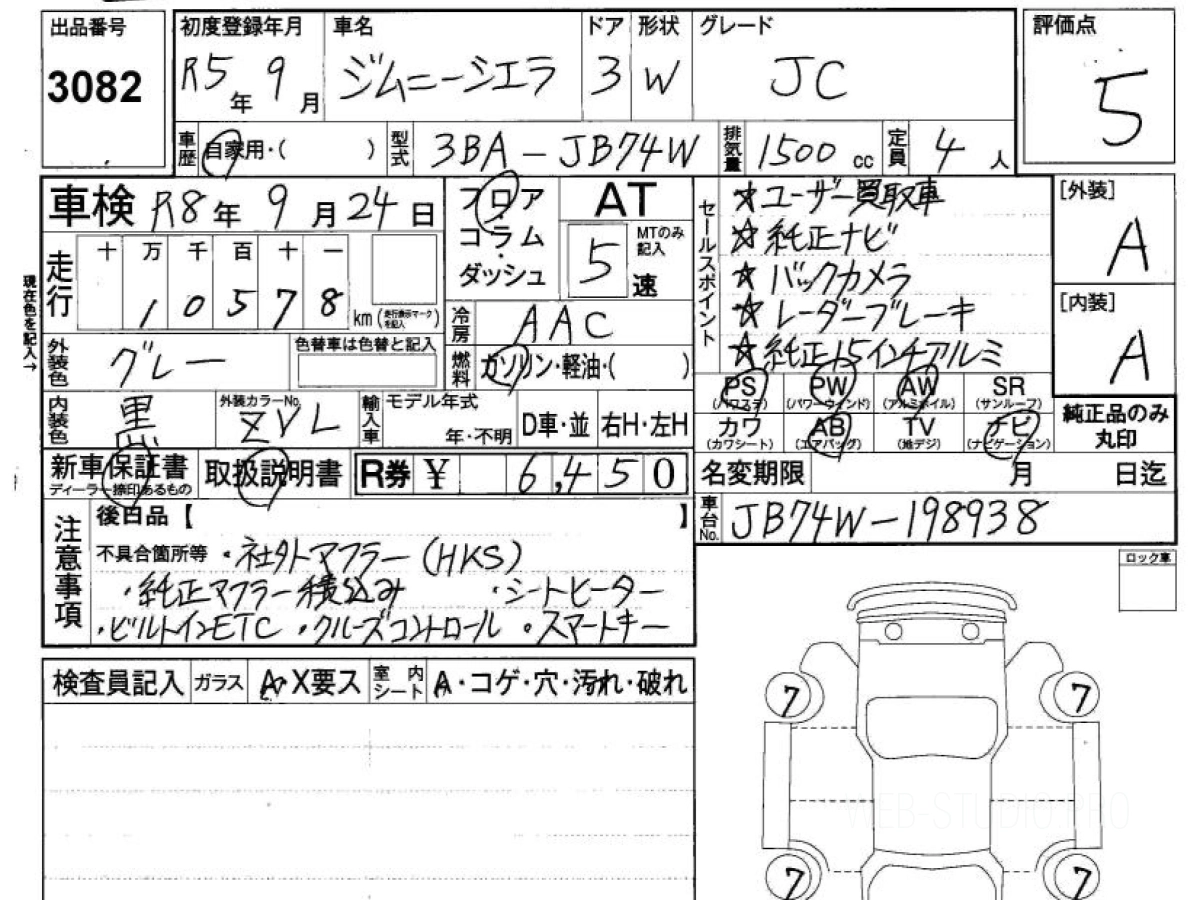 出品番号 3082
初度登録年月 R5年 9月
車名 ジムニーシエラ
ドア 3
形状 W
グレード JC
評価点 5
車歴 自家用・( )
型式 3BA-JB74W
排気量 1500 cc
定員 4人
車検 R8年 9月 24日
フロア・コラム・ダッシュ
AT
5速 MTのみ記入
セールスポイント
★ユーザー買取車
☆純正ナビ
★バックカメラ
★レーダーブレーキ
★純正15インチアルミ
[外装] A
[内装] A
現在色を記入→
走行 十 万 千 百 十 一
1 0 5 7 8 km (走行表示マークを記入)
冷房 AAC
燃料 ガソリン・軽油・( )
外装色 グレー
色替車は色替と記入
内装色 黒
外装カラーNo. ZVL
輸入車 モデル年式 年・不明
D車・並 右H・左H
PS (パワステ) PW (パワーウィンド) AW (アルミホイル) SR (サンルーフ)
カワ (カワシート) AB (エアバッグ) TV (地デジ) ナビ (ナビゲーション)
純正品のみ丸印
新車保証書 ディーラー捺印あるもの
取扱説明書
R券 ¥ 6,450
名変期限 月 日迄
車台No. JB74W-198938
注意事項
後日品【 】
不具合箇所等 ・社外マフラー(HKS)
・純正マフラー積込み ・シートヒーター
・ビルトインETC ・クルーズコントロール ・スマートキー
ロック車
検査員記入 ガラス A・X要ス 室内シート A・コゲ・穴・汚れ・破れ
7 7
WEB-STUDIO.PRO
7 7